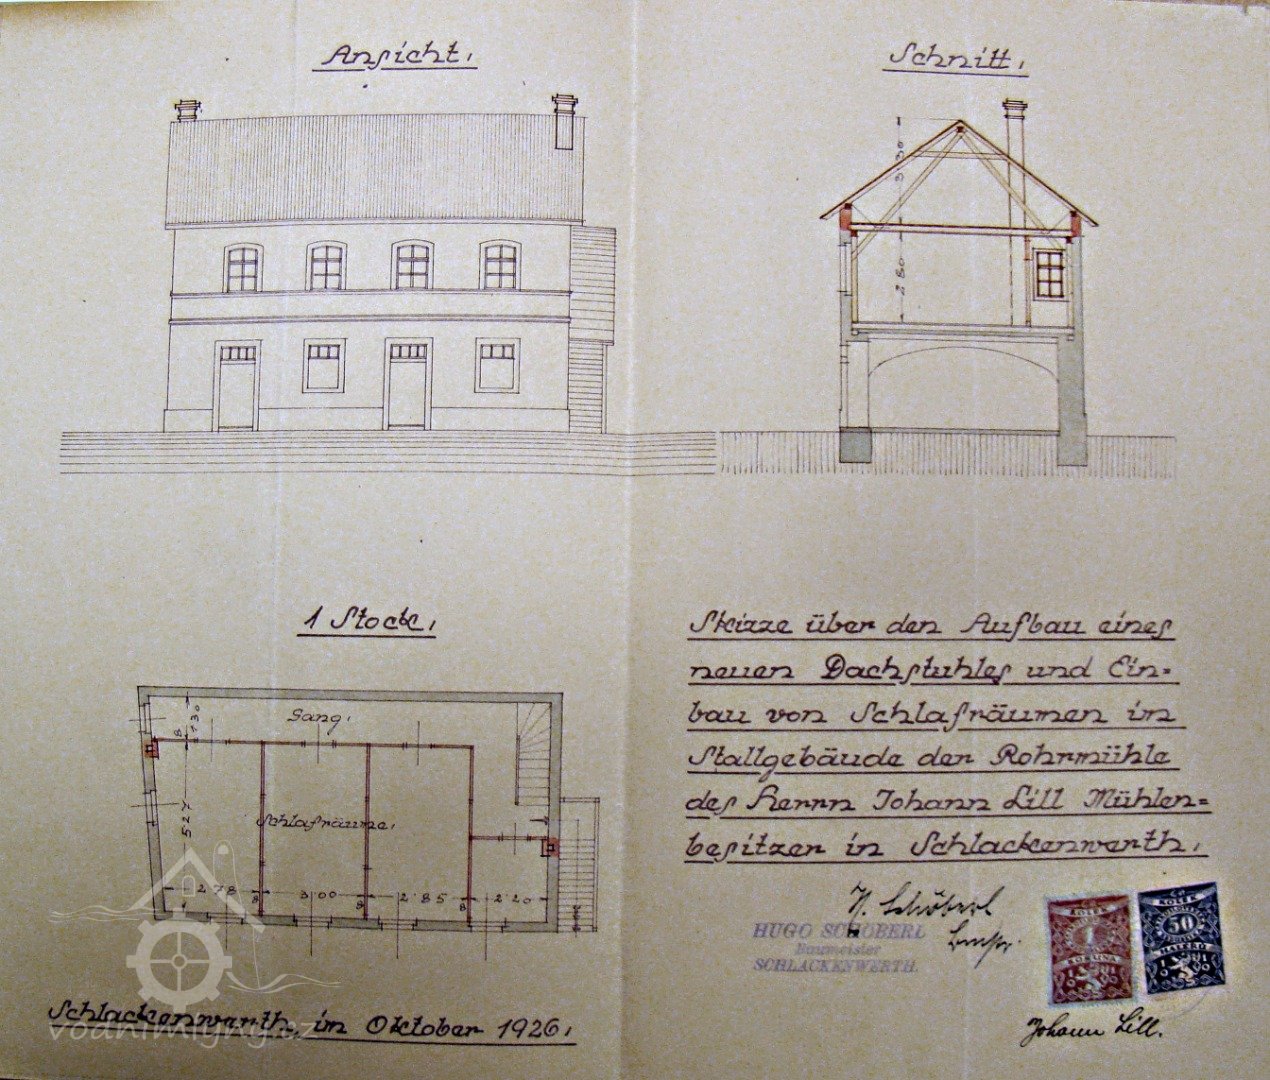 Ansicht.
Schnitt.
3.30
2.80
1 Stock.
Gang.
1.30
8
5.27
Schlafräume.
2.78
8
3.00
8
2.85
8
2.20
Skizze über den Aufbau eines
neuen Dachstuhles und Ein=
bau von Schlafräumen im
Stallgebäude der Rohrmühle
des Herrn Johann Lill Mühlen=
besitzer in Schlackenwerth.
H. Schöberl
HUGO SCHÖBERL
Baumeister
SCHLACKENWERTH.
KOLEK
1
KORUNA
KOLEK
50
HALÉŘŮ
Johann Lill.
Schlackenwerth, im Oktober 1926.
vodnimlyny.cz